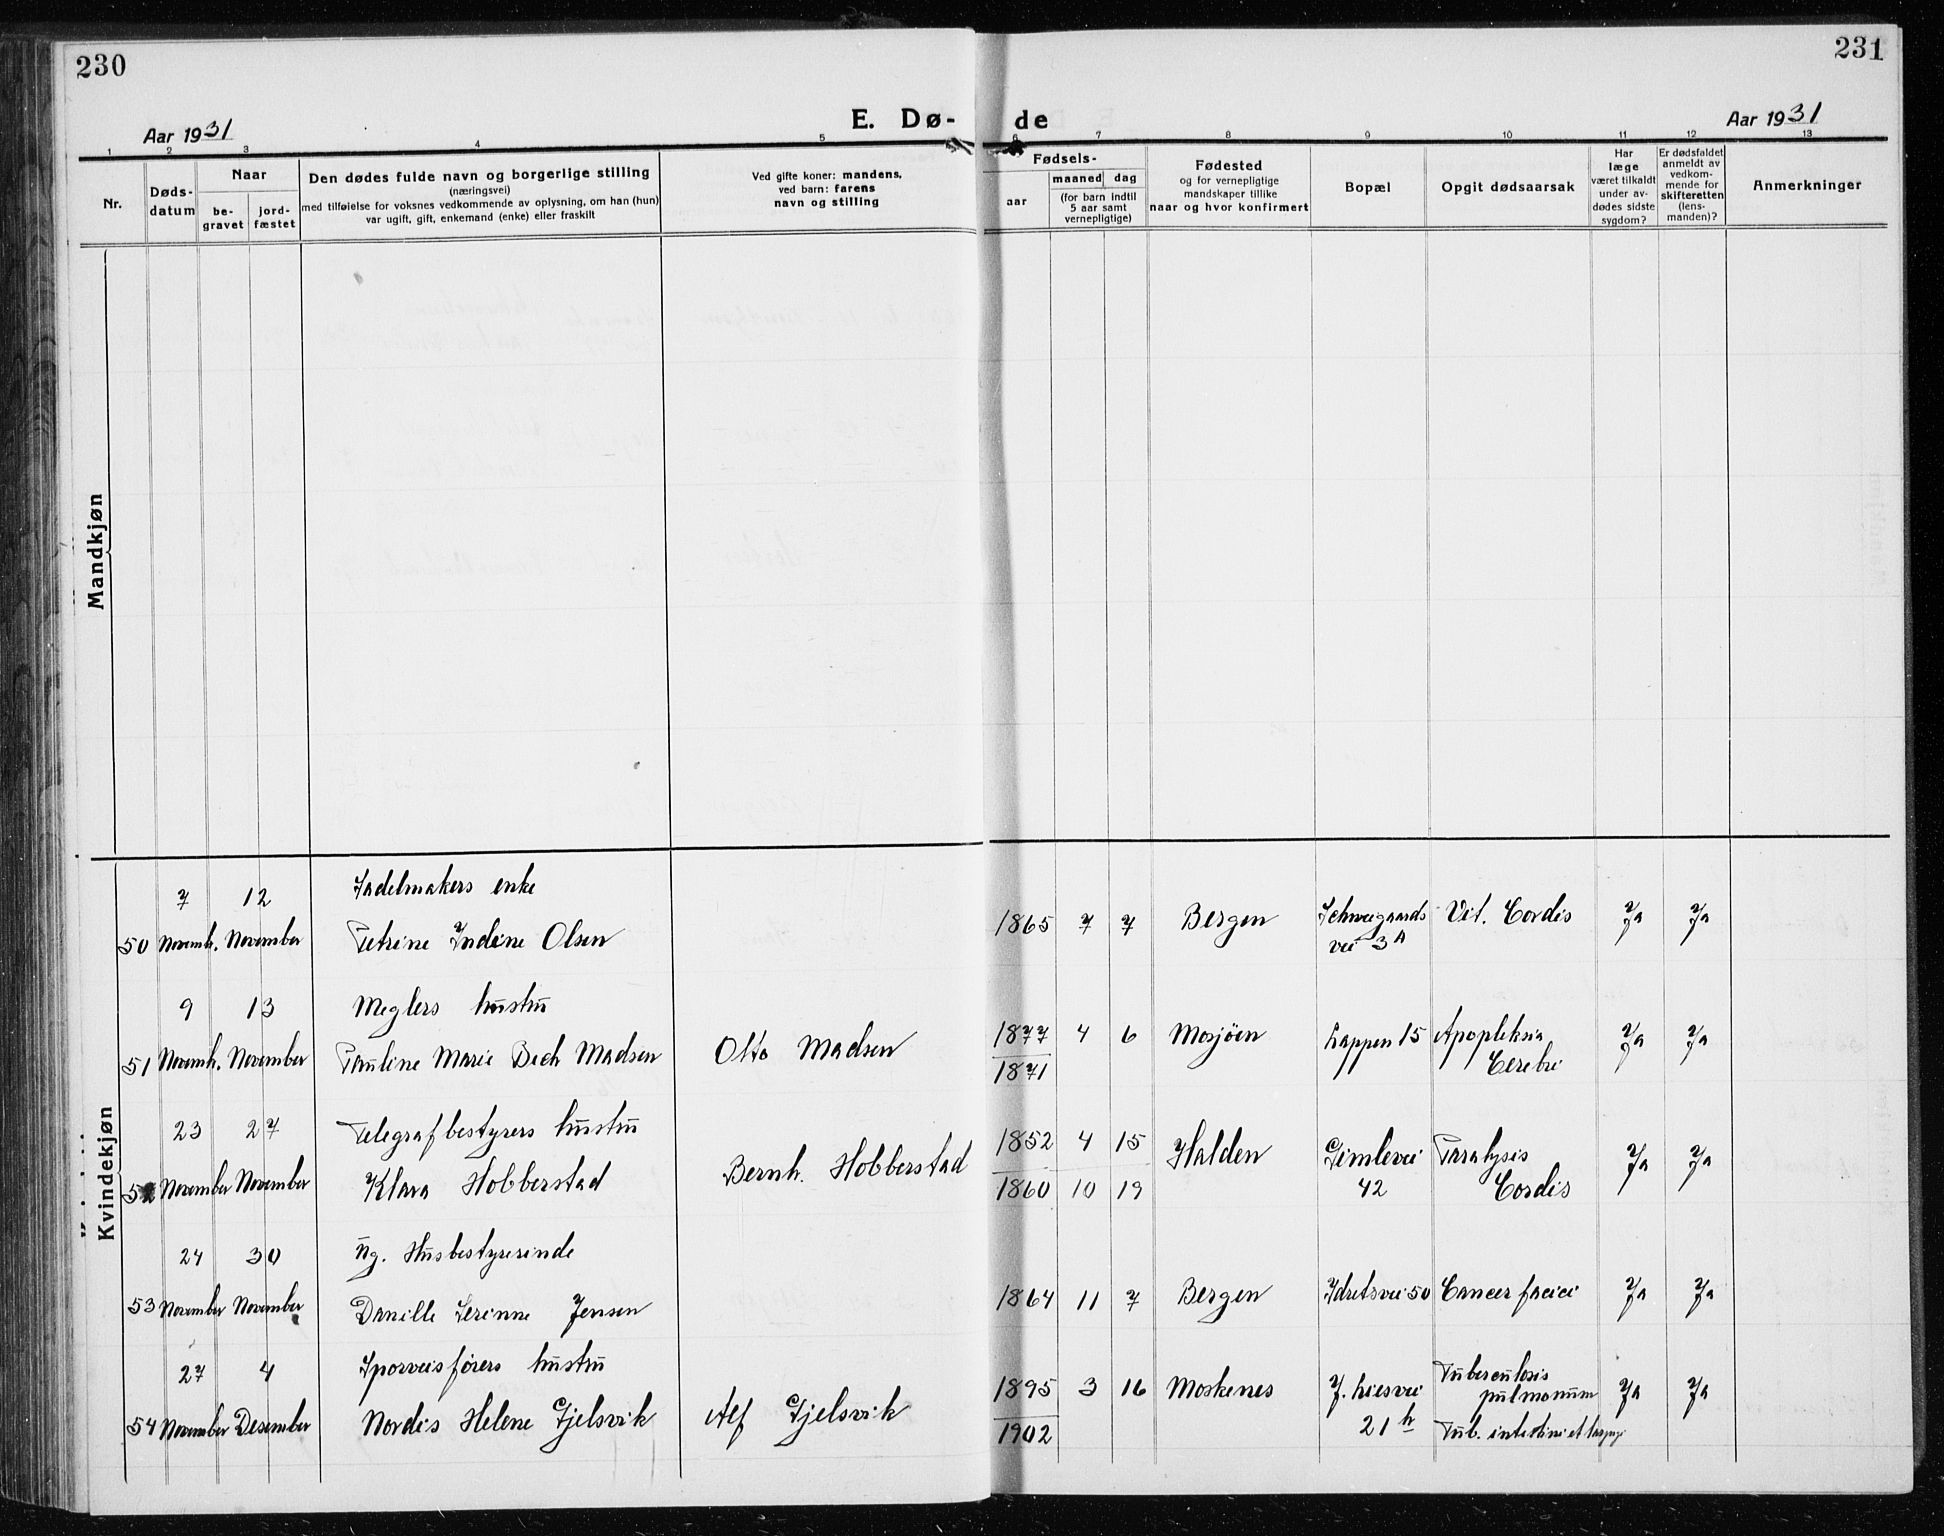 230
231
Aar 1931
E. Dø-
de
Aar 1931
1 2 3 4 5 6 7 8 9 10 11 12 13
Nr.
Døds-
datum
Naar
be-
gravet
jord-
fæstet
Den dødes fulde navn og borgerlige stilling
(næringsvei)
med tilføielse for voksnes vedkommende av oplysning, om han (hun)
var ugift, gift, enkemand (enke) eller fraskilt
Ved gifte koner: mandens,
ved barn: farens
navn og stilling
Fødsels-
aar
maaned dag
(for barn indtil
5 aar samt
vernepligtige)
Fødested
og for vernepligtige
mandskaper tillike
naar og hvor konfirmert
Bopæl
Opgit dødsaarsak
Har
læge
været tilkaldt
under av-
dødes sidste
sygdom?
Er dødsfaldet
anmeldt av
vedkom-
mende for
skifteretten
(lens-
manden)?
Anmerkninger
Mandkjøn
Kvindekjøn
7 12 Sadelmakers enke
50 Novemb. November Petrine Indine Olsen
1865 7 7 Bergen Schweigaards
vei 3A
Vit. Cordis Ja Ja
9 13 Meglers hustru
51 Novemb. November Pauline Marie Bech Madsen Otto Madsen
1877 4 6 Mosjöen Lappen 15 Apopleksia
Cerebri Ja Ja
1871
23 27 Telegrafbestyrers hustru
52 November November Klara Hobberstad Bernh. Hobberstad
1852 4 15 Halden Gimlevei
42
Paralysis
Cordis Ja Ja
1860 10 19
24 30 Ug. Husbestyrerinde
53 November November Danille Serinne Jensen
1864 11 7 Bergen Idretsvei 50 Cancer faciei Ja Ja
27 4 Sporveisförers hustru
54 November Desember Nordis Helene Gjelsvik Alf Gjelsvik
1895 3 16 Moskenes J. Liesvei
21 h
Tuberculosis
pulmonum Ja Ja
1902
Tub. intestini et